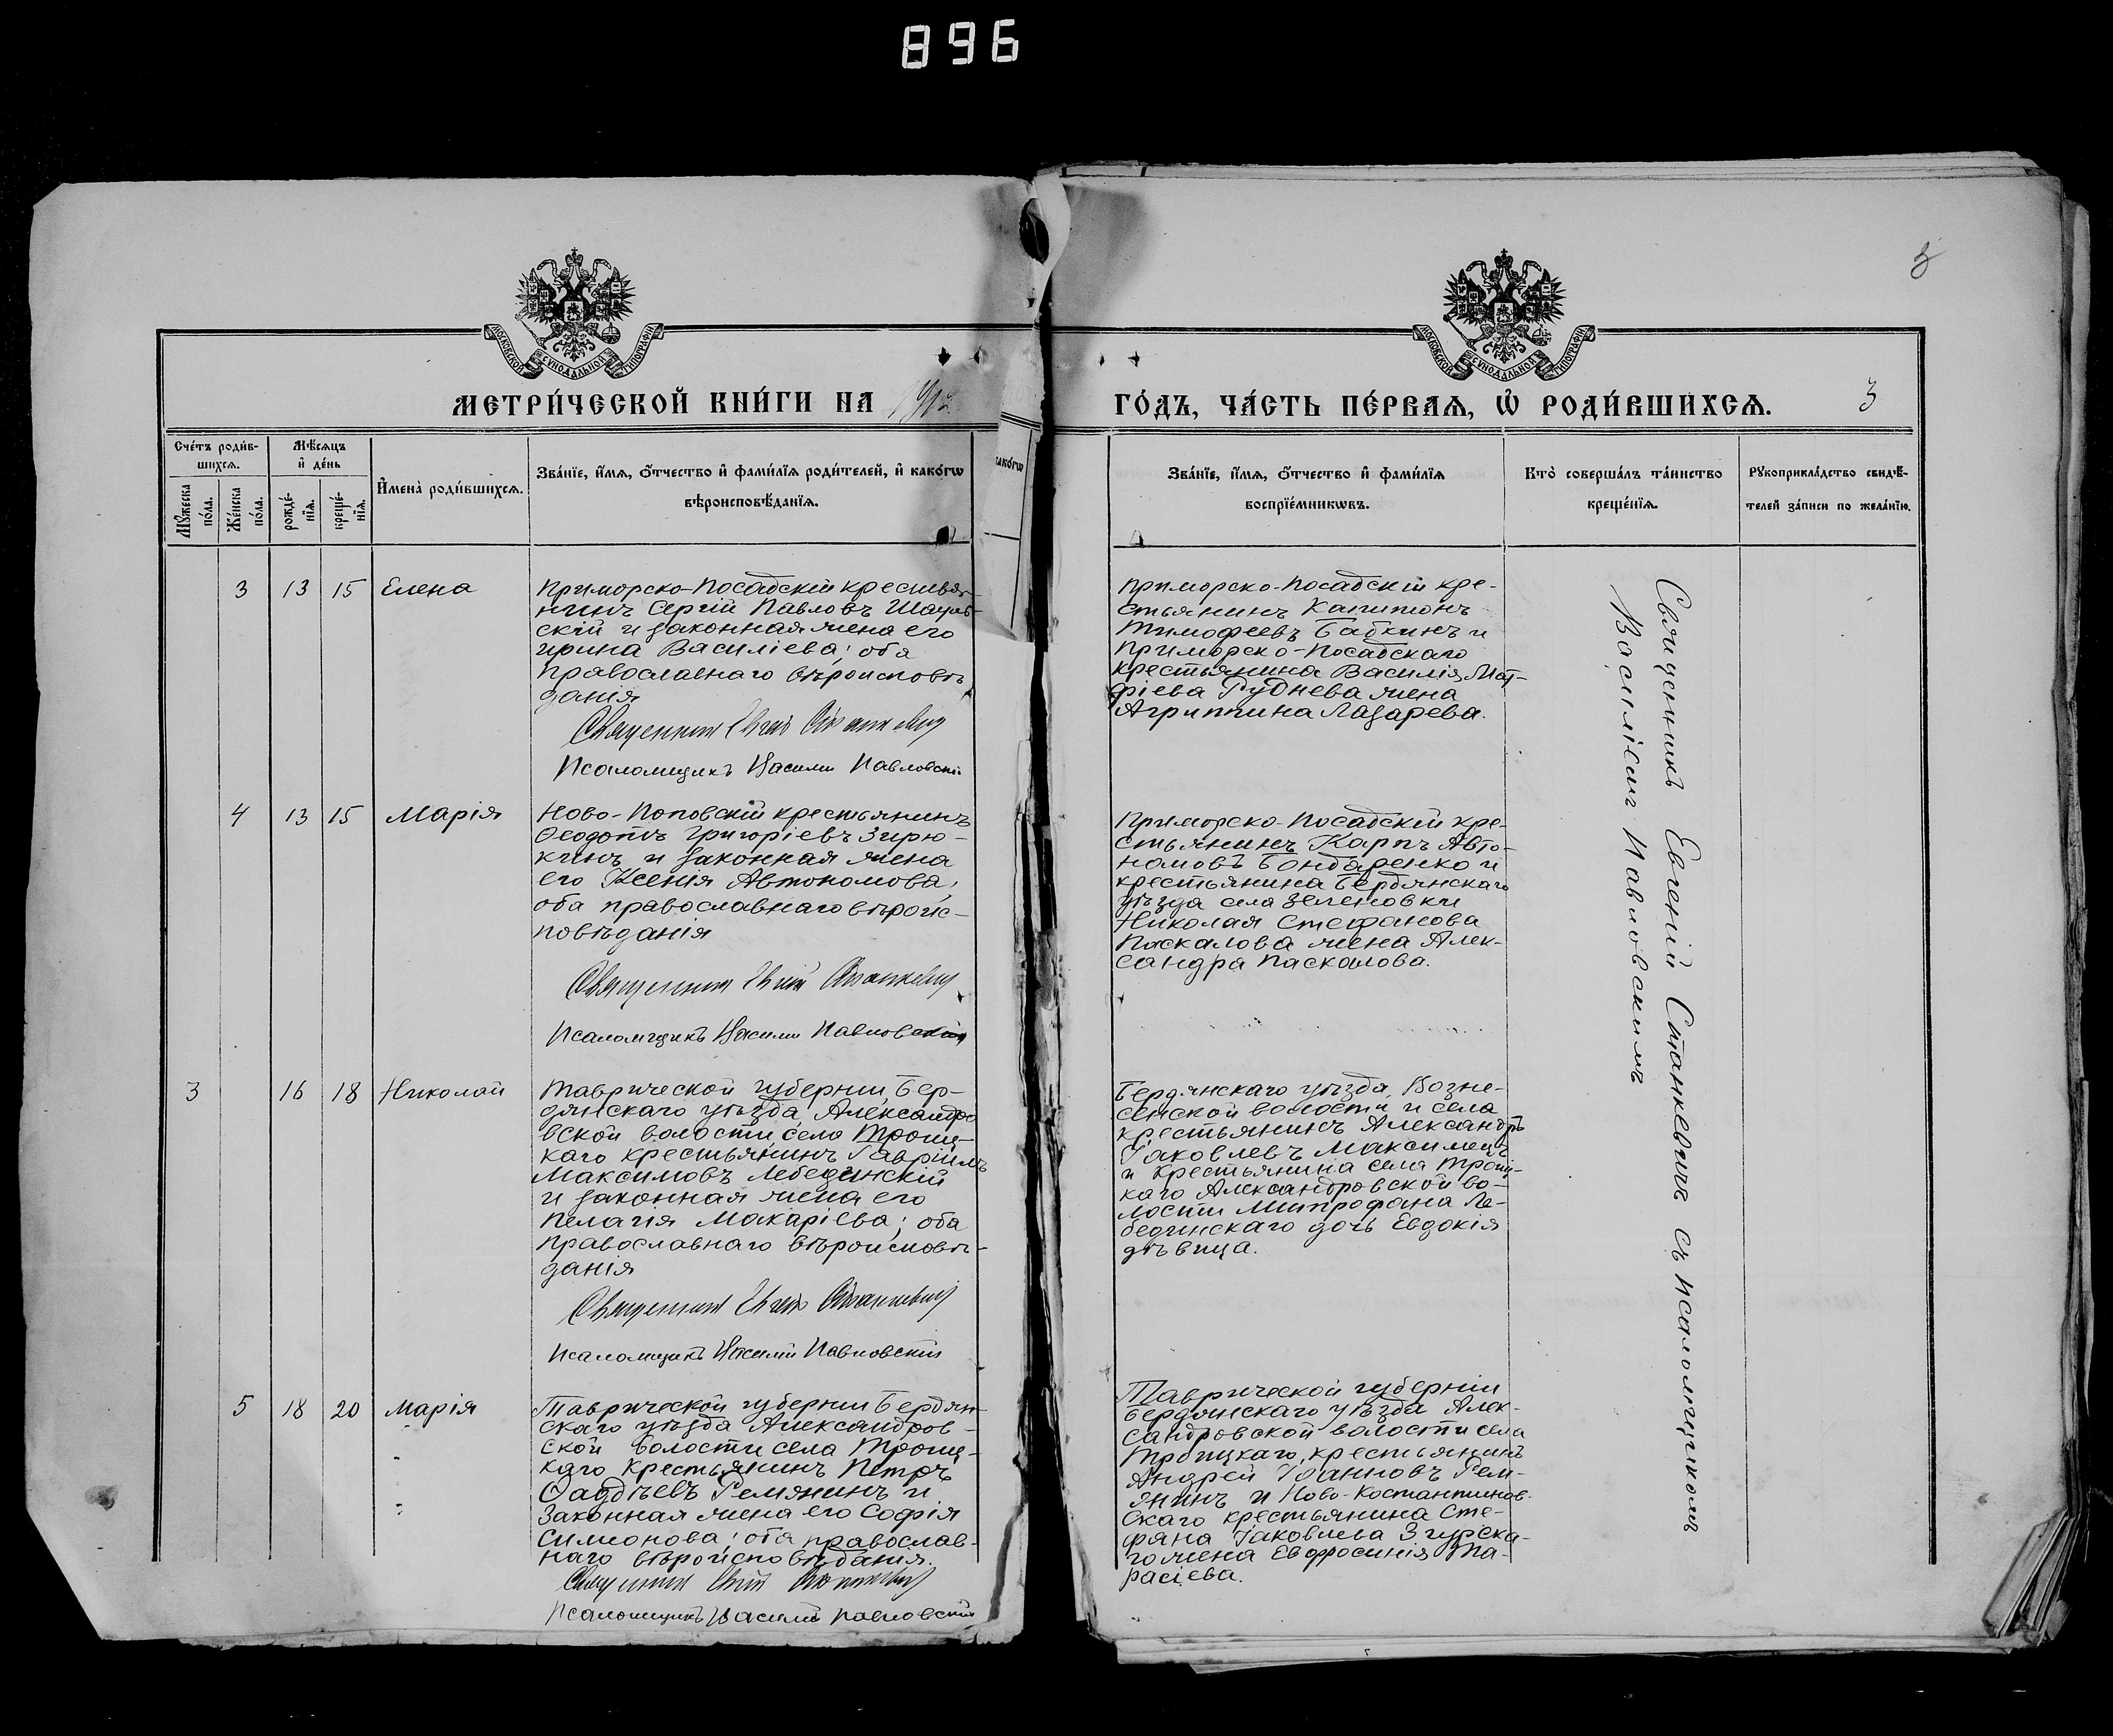 896
3
МОСКОВСКОЙ СУНОДАЛЬНОЙ ТИПОГРАФІИ
МОСКОВСКОЙ СУНОДАЛЬНОЙ ТИПОГРАФІИ
МЕТРИ́ЧЕСКОЙ КНИ́ГИ НА 1912
ГО́ДЪ, ЧА́СТЬ ПЕ́РВАѦ, Ѡ҆ РОДИ́ВШИХСѦ. 3
Сче́тъ роди́в-
шихсѧ.
Мѣ́сѧцъ
и҆ де́нь
Мꙋ́жеска
по́ла.
Же́нска
по́ла.
рожде́-
нїѧ.
креще́-
нїѧ.
И҆мена̀ роди́вшихсѧ.
Зва́нїе, и҆́мѧ, ѻ҆́тчество и҆ фами́лїѧ роди́телей, и҆ како́гѡ
вѣроисповѣ́данїѧ.
како́гѡ
Зва́нїе, и҆́мѧ, ѻ҆́тчество и҆ фами́лїѧ
воспрїе́мникѡвъ.
Кто̀ соверша́лъ та́инство
креще́нїѧ.
Рꙋкоприкла́дство свидѣ́-
телей за́писи по жела́нїю.
3 13 15 Елена
Приморско-Посадскій крестья-
нинъ Сергій Павловъ
скій и законная жена его
Ирина Василіева; оба
православнаго вѣроисповѣ
данія
Священникъ Евгеній Станкевич
Псаломщикъ Василий Павловскій
Приморско-Посадскій кре-
стьянинъ Капитонъ
Тимофеевъ Бабкинъ и
Приморско-Посадскаго
крестьянина Василія Мат-
фіева Руднева жена
Агриппина Лазарева.
4 13 15 Марія
Ново-Поповскій крестьянинъ
Ѳеодотъ Григоріевъ Зирю-
кинъ и законная жена
его Ксенія Автономова;
оба православнаго вѣроис-
повѣданія
Священникъ Евгеній Станкевич
Псаломщикъ Василий Павловскій
Приморско-Посадскій кре-
стьянинъ Карпъ Авто-
номовъ Бондаренко и
крестьянина Бердянскаго
уѣзда села Зеленовки
Николая Стефанова
Паскалова жена Алек-
сандра Паскалова.
3 16 18 Николай
Таврической губерніи, Бер-
дянскаго уѣзда, Александро
вской волости, села Троиц-
каго крестьянинъ Гавріилъ
Максимовъ Лебединскій
и законная жена его
Пелагія Макаріева; оба
православнаго вѣроисповѣ-
данія
Священникъ Евгеній Станкевич
Псаломщикъ Василий Павловскій
Бердянскаго уѣзда, Возне-
сенской волости и села
крестьянинъ Александръ
Іаковлевъ Максимецъ
и крестьянина села Троиц-
каго Александровской во-
лости Митрофана Ле-
бединскаго дочь Евдокія
дѣвица.
5 18 20 Марія
Таврической губерніи Бердян
скаго уѣзда Александров-
ской волости села Троиц-
каго крестьянинъ Петръ
Ѳаддѣевъ Ремянинъ и
законная жена его Софія
Симионова; оба православ-
наго вѣроисповѣданія.
Священникъ Евгеній Станкевич
Псаломщикъ Василий Павловскій
Таврической губерніи
Бердянскаго уѣзда Алек-
сандровской волости села
Троицкаго, крестьянинъ
Андрей Іоанновъ Рем-
янинъ и Ново-Костантинов-
скаго крестьянина Сте-
фана Іаковлева Згурска-
го жена Евфросинія Та-
расіева.
Священникъ Евгеній Станкевичъ съ псаломщикомъ
Василіемъ Павловскимъ